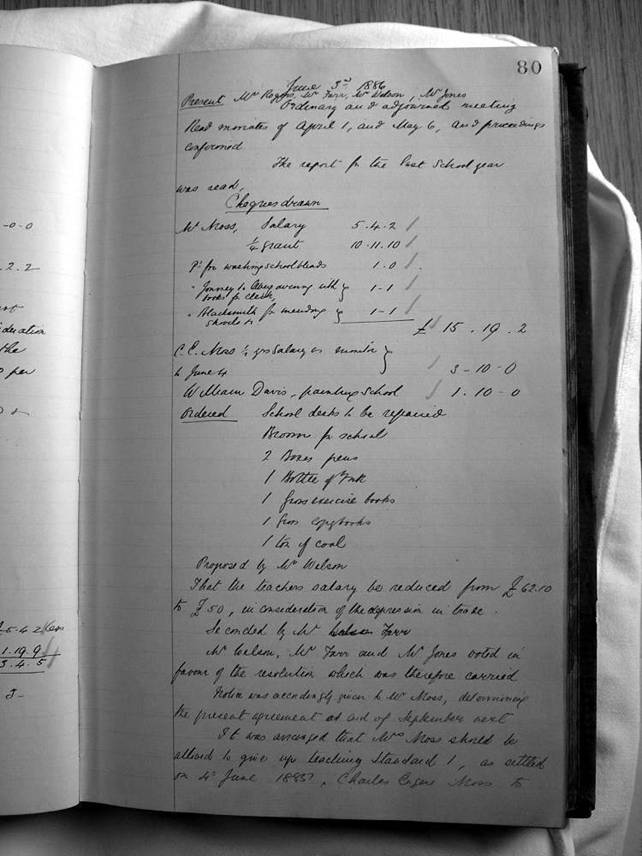 80
June 3rd 1886
Present Mr Rogers, Mr Farr, Mr Welson, Mr Jones
Ordinary and adjourned meeting
Read minutes of April 1, and May 6, and proceedings
confirmed.
The report for the last School year
was read,
Cheques drawn
Mr Moss, Salary 5.4.2
¼ grant 10.11.10
Pd for washing school blinds 1.0
" Journey to Abergavenny with
books for clerk 1-1
" Blacksmith for mending 1-1
£ 15.19.2
C. E. Moss ¼ yrs Salary as monitor
to June 4 3-10-0
William Davis, painting School 1.10-0
Ordered School desks to be repaired
Broom for school
2 Boxes pens
1 Bottle of Ink
1 Gross exercise books
1 Gross copybooks
1 ton of coal
Proposed by Mr Welson
That the teachers salary be reduced from £62.10
to £50, in consideration of the depression in trade.
Seconded by Mr Farr
Mr Welson, Mr Farr and Mr Jones voted in
favour of the resolution which was therefore carried
Notice was accordingly given to Mr Moss, determining
the present agreement at end of September next
It was arranged that Mrs Moss should be
allowed to give up teaching Standard 1, as settled
on 4 June 1885, Charles Moss to
-0-0
2.2
the
per
5.4.2
1.19.9
3.4.5